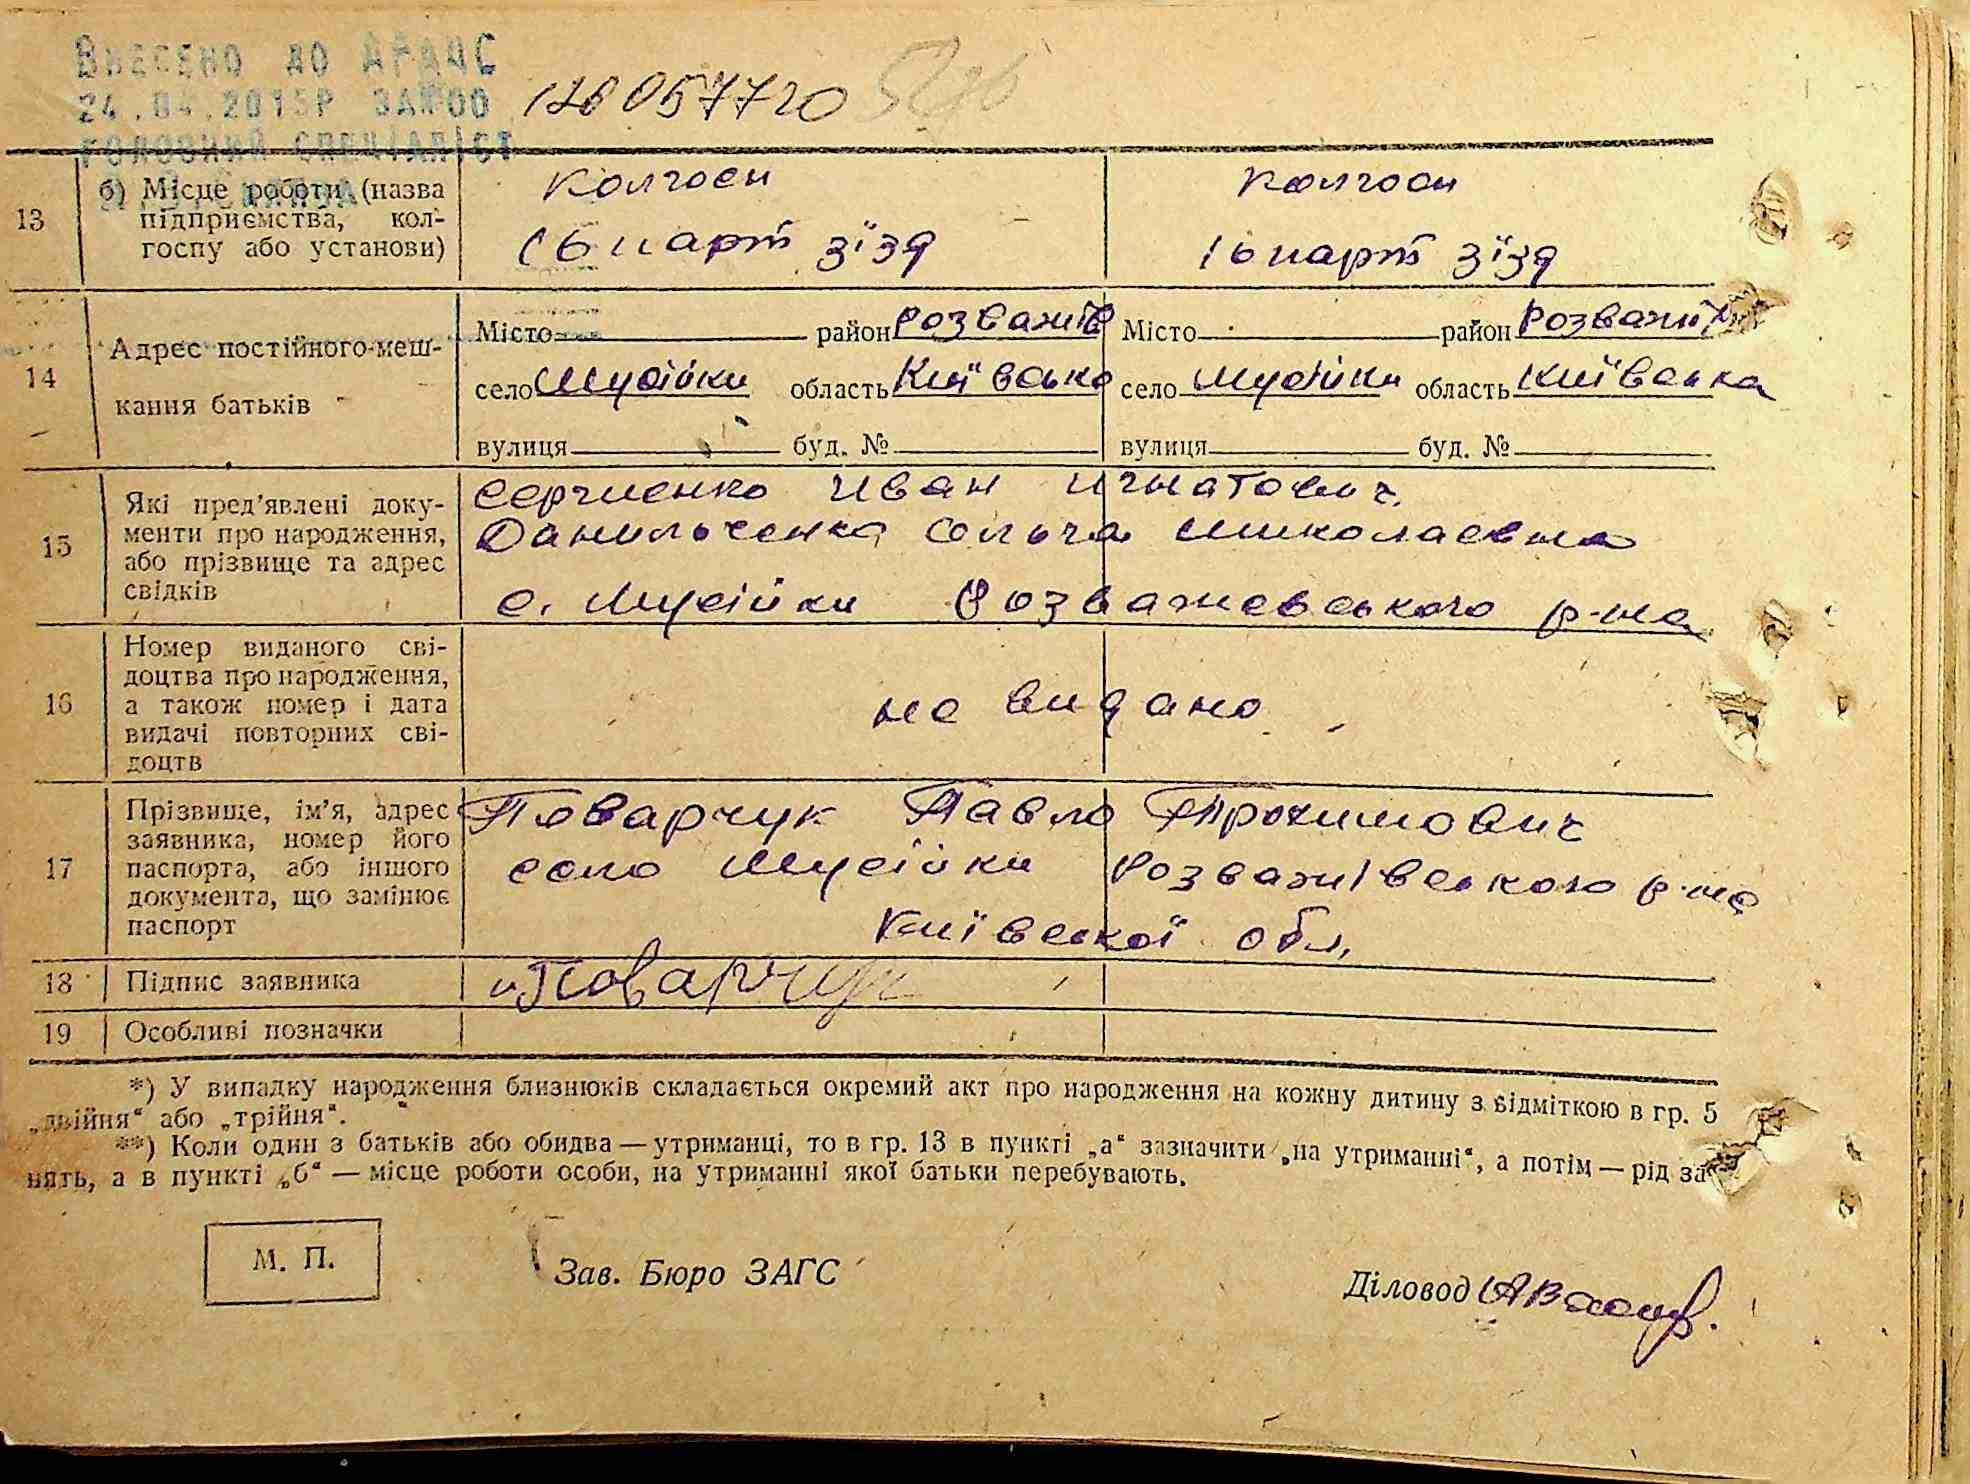 Внесено до ДРАЦС
24.04.2015р за №00
головний спеціаліст
13
б) Місце роботи (назва
підприємства, кол-
госпу або установи)
Колгосп
16 парт зїзд
колгосп
16 парт зїзд
14
Адрес постійного меш-
кання батьків
Місто район Розважів
село Мусійки область Київсько
вулиця буд. №
Місто район Розважів
село Мусійки область Київська
вулиця буд. №
15
Які пред'явлені доку-
менти про народження,
або прізвище та адрес
свідків
Сергиенко Иван Игнатович,
Данильченка Ольга Миколаевна
с. Мусійки Розважевського р-на
16
Номер виданого сві-
доцтва про народження,
а також номер і дата
видачі повторних сві-
доцтв
не видано
17
Прізвище, ім'я, адрес
заявника, номер його
паспорта, або іншого
документа, що замінює
паспорт
Поварчук Павло Трохимович
село Мусійки Розважівського р-на
Київської обл,
18
Підпис заявника
Поварчук
19
Особливі позначки
*) У випадку народження близнюків складається окремий акт про народження на кожну дитину з відміткою в гр. 5
„двійня“ або „трійня“.
**) Коли один з батьків або обидва — утриманці, то в гр. 13 в пункті „а“ зазначити „на утриманні“, а потім — рід за-
нять, а в пункті „б“ — місце роботи особи, на утриманні якої батьки перебувають.
М. П.
Зав. Бюро ЗАГС
Діловод